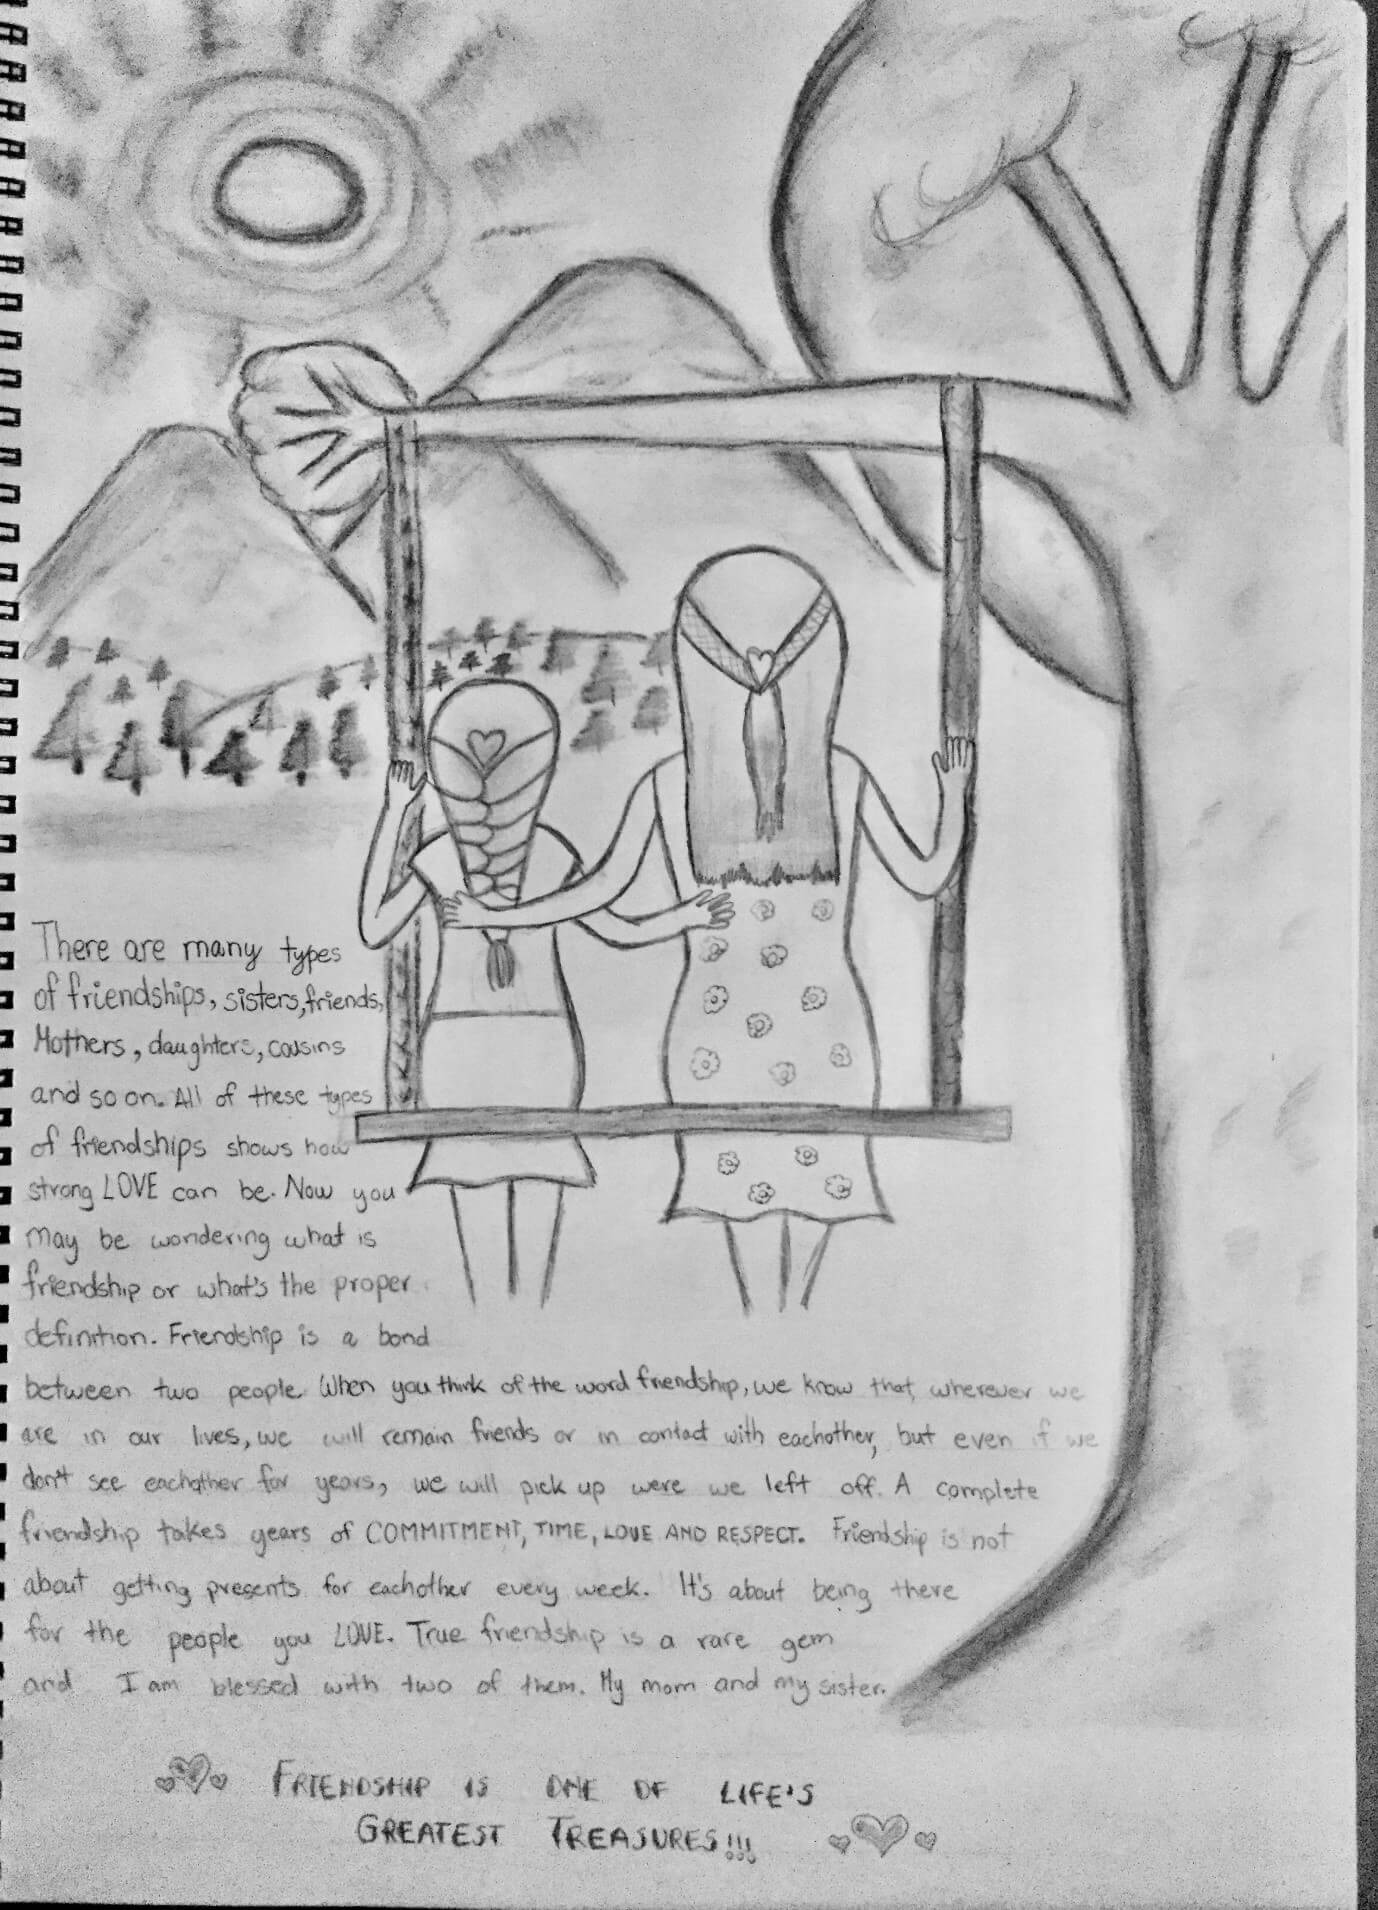 There are many types
of friendships, sisters, friends,
Mothers, daughters, cousins
and so on. All of these types
of friendships shows how
strong LOVE can be. Now you
may be wondering what is
friendship or what's the proper
definition. Friendship is a bond
between two people. When you think of the word friendship, we know that, wherever we
are in our lives, we will remain friends or in contact with eachother, but even if we
don't see eachother for years, we will pick up were we left off. A complete
friendship takes years of COMMITMENT, TIME, LOVE AND RESPECT. Friendship is not
about getting presents for eachother every week. It's about being there
for the people you LOVE. True friendship is a rare gem
and I am blessed with two of them. My mom and my sister.
FRIENDSHIP IS ONE OF LIFE'S
GREATEST TREASURES!!!